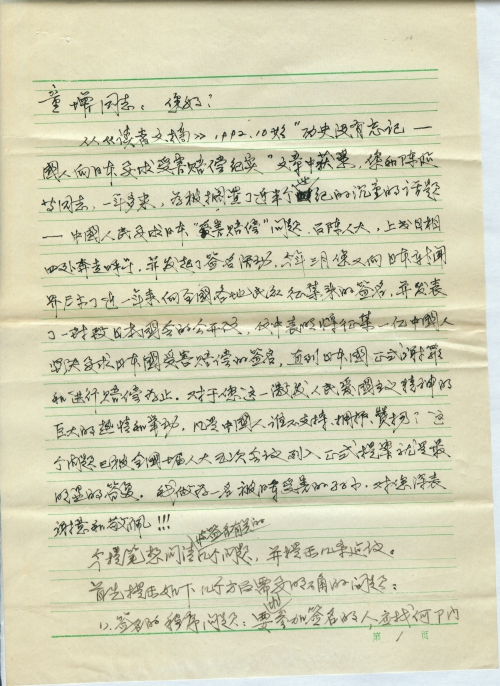 童增同志：您好！
从《读者文摘》1992.10期“历史没有忘记—
國人向日本民间受害赔偿纪实”文章中获悉，您和陈际
等同志，一年多来，为被搁置了近半个世纪的沉重的话题
—中國人民要求日本“受害赔偿”问题，百陈人大，上书日相
四处奔走呼吁，并发起了签名活动，今年三月您又向日本新闻
界展示了近一年来向全國各地民众征集来的签名，并发表
了一封致日本國会的公开信，信中表明将征集一亿中國人
坚决要求日本國受害赔偿的签名，直到日本國正式谢罪
和进行赔偿为止。对于您这一激发人民爱國主义精神的
巨大的热情和举动，凡是中國人谁不支持、拥护、赞扬？这
个问题已被全國七届人大五次会议列入正式提案就是最
明显的答复。我做为一名被日本受害的后代，对您深表
谢意和敬佩!!!
今提笔想问清几个问题，并提出几条建议。
首先提出如下几个方面需要明确的问题：
1).签名的程序问题：要参加签名的人应找何门
第 1 页